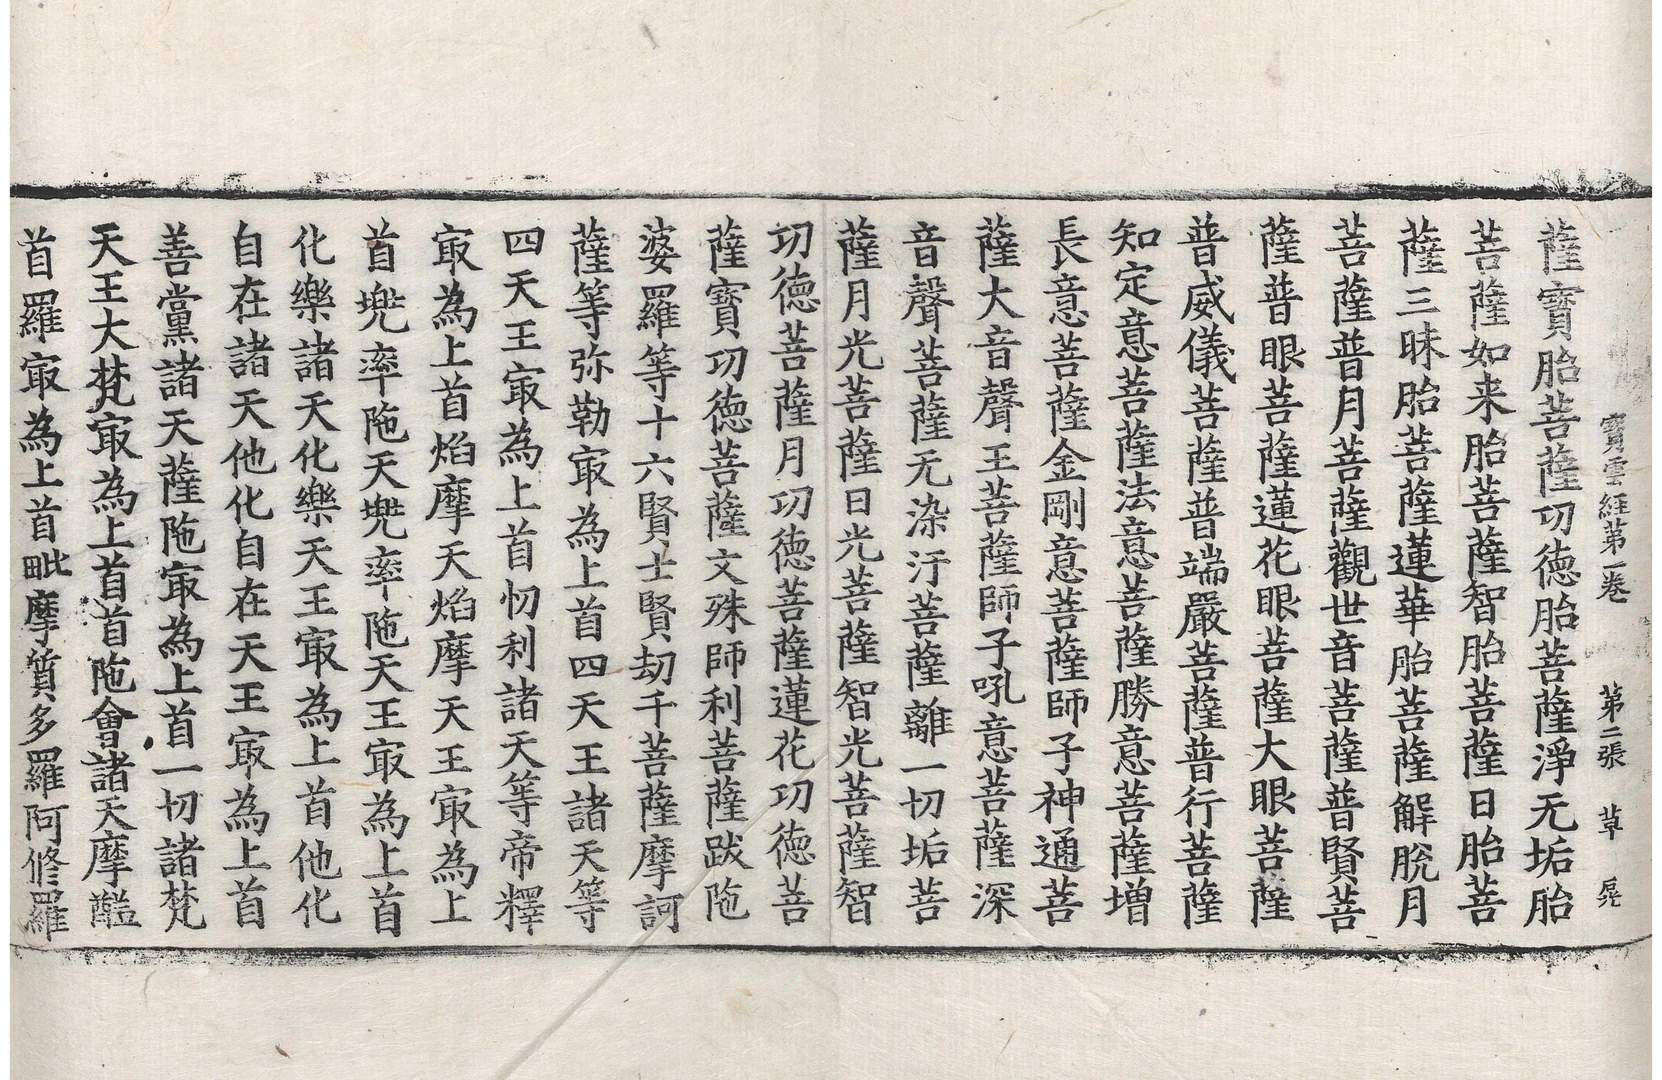 寶雲經第一卷　第二張　草
薩寶胎菩薩㓛德胎菩薩淨无垢胎
菩薩如来胎菩薩智胎菩薩日胎菩
薩三昧胎菩薩蓮華胎菩薩解脫月
菩薩普月菩薩觀世音菩薩普賢菩
薩普眼菩薩蓮花眼菩薩大眼菩薩
普威儀菩薩普端嚴菩薩普行菩薩
知定意菩薩法意菩薩勝意菩薩增
長意菩薩金剛意菩薩師子神通菩
薩大音聲王菩薩師子吼意菩薩深
音聲菩薩无染汙菩薩離一切垢菩
薩月光菩薩日光菩薩智光菩薩智
㓛德菩薩月㓛德菩薩蓮花㓛德菩
薩寶㓛德菩薩文殊師利菩薩跋陁
婆羅等十六賢士賢劫千菩薩摩訶
薩等弥勒㝡為上首四天王諸天等
四天王㝡為上首忉利諸天等帝釋
㝡為上首焰摩天焰摩天王㝡為上
首兠率陁天兠率陁天王㝡為上首
化樂諸天化樂天王㝡為上首他化
自在諸天他化自在天王㝡為上首
善黨諸天薩陁㝡為上首一切諸梵
天王大梵㝡為上首首陁會諸天摩醯
首羅㝡為上首毗摩質多羅阿修羅